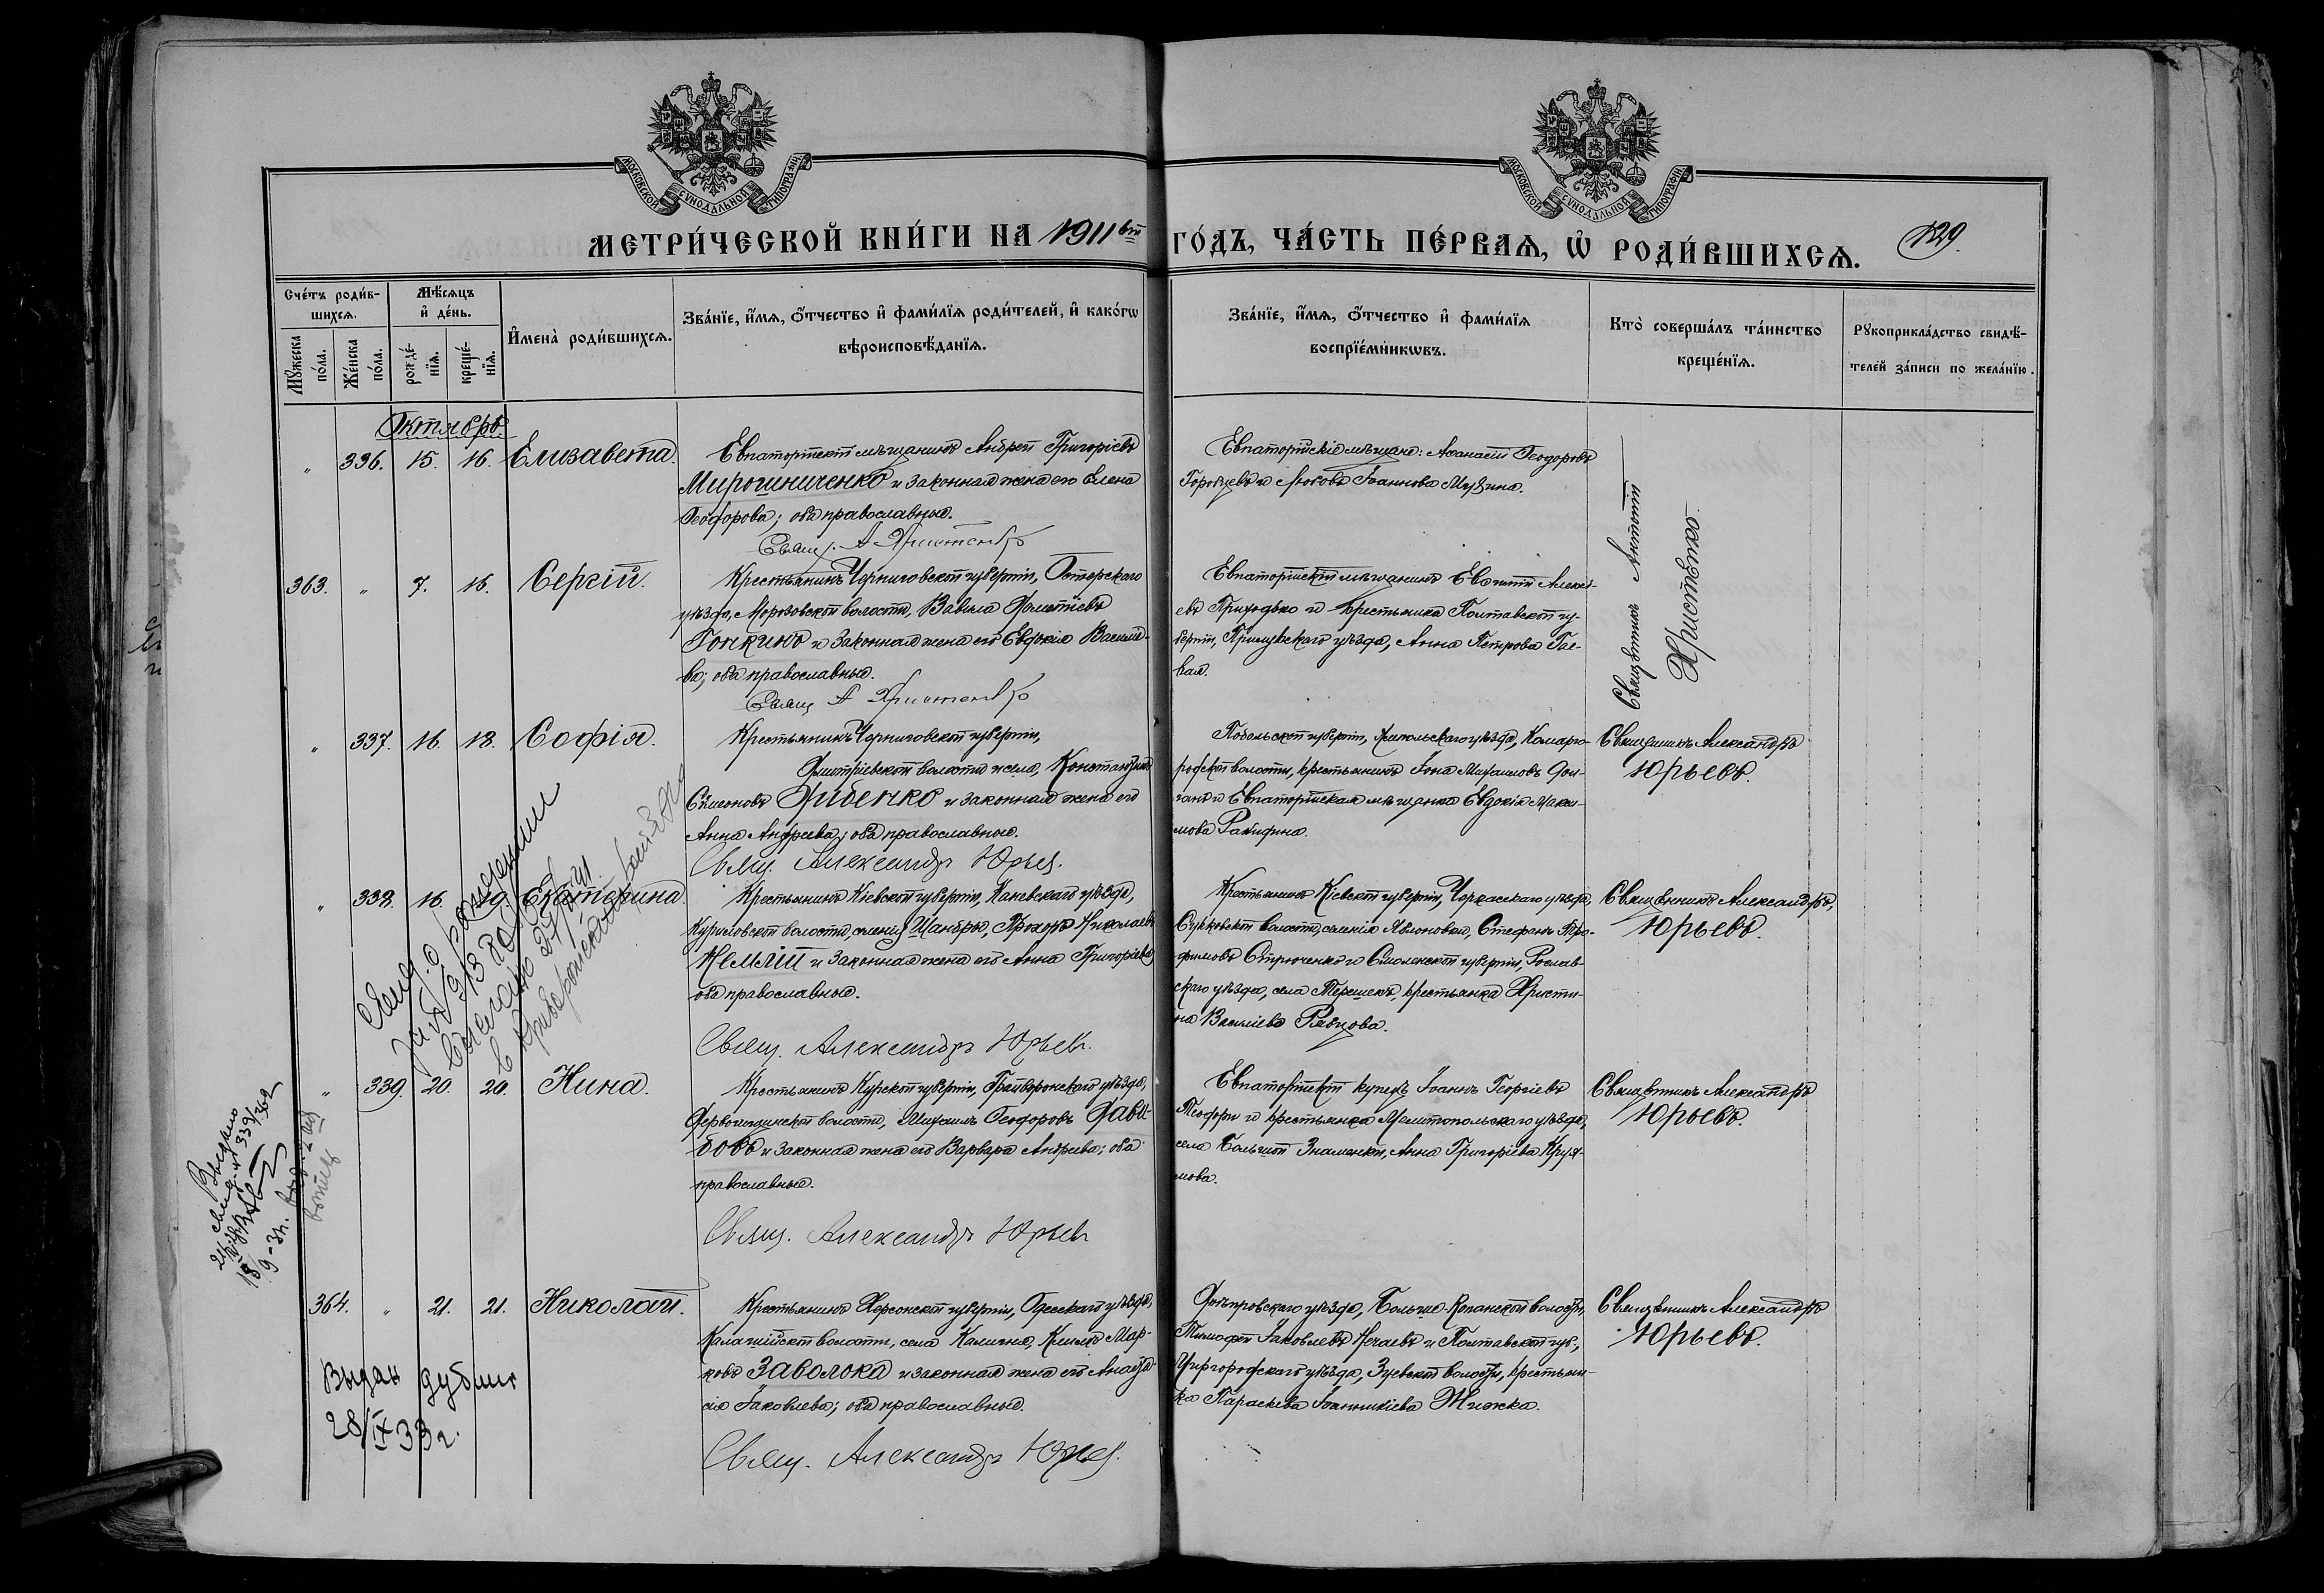 МОСКОВСКОЙ СѴНОДАЛЬНОЙ ТИПОГРАФІИ
МОСКОВСКОЙ СѴНОДАЛЬНОЙ ТИПОГРАФІИ
МЕТРИ́ЧЕСКОЙ КНИ́ГИ НА 1911 ый ГО́ДЪ, ЧА́СТЬ ПЕ́РВАѦ, Ѡ҆ РОДИ́ВШИХСѦ.
129.
Сче́тъ роди́в-
шихсѧ.
Мѣ́сѧцъ
и҆ де́нь.
Мꙋ́жеска по́ла.
Же́нска по́ла.
рожде́-
нїѧ.
креще́-
нїѧ.
И҆мена̀ роди́вшихсѧ.
Зва́нїе, и҆́мѧ, ѻ҆́тчество и҆ фами́лїѧ роди́телей, и҆ како́гѡ
вѣроисповѣ́данїѧ.
Зва́нїе, и҆́мѧ, ѻ҆́тчество и҆ фами́лїѧ
воспрїе́мникѡвъ.
Кто̀ соверша́лъ та́инство
креще́нїѧ.
Рꙋкоприкла́дство свидѣ́-
телей за́писи по жела́нїю.
Октябрь.
„ 336. 15. 16. Елизавета.
Евпаторійскій мѣщанинъ Андрей Григоріевъ
Мирошниченко и законная жена его Елена
Ѳеодорова; оба православные.
Свящ. А Христенко
Евпаторійскіе мѣщане: Аѳанасій Ѳеодоровъ
и Любовь Іоаннова
Священникъ Антоній
Христенко.
363. „ 7. 16. Сергій.
Крестьянинъ Черниговской губерніи, Остерскаго
уѣзда, Морозовской волости, Вавила
Гонкинъ и законная жена его Евдокія Василіе-
ва; оба православные.
Свящ А Христенко
Евпаторійскій мѣщанинъ Алексі-
евъ Приходько и крестьянка Полтавской гу-
берніи, Прилукскаго уѣзда, Анна Петрова Гае-
вая.
„ 337. 16. 18. Софія.
Крестьянинъ Черниговской губерніи,
Дмитріевской волости и села, Константинъ
Симеоновъ Диденко и законная жена его
Анна Андреева; оба православные.
Свящ. Александръ Юрьев.
Подольской губерніи, Ямпольскаго уѣзда, Комарго-
родской волости, крестьянинъ Іона Михаиловъ
и Евпаторійская мѣщанка Евдокія Макси-
мова
Священникъ Александръ
Юрьевъ.
„ 338. 16. 19. Екатерина.
Крестьянинъ Кіевской губерніи, Каневскаго уѣзда,
волости, селенія Шандры, Прохоръ Николаевъ
и законная жена его Анна Григоріева;
оба православные.
Свящ. Александръ Юрьев.
Крестьянинъ Кіевской губерніи, Черкасскаго уѣзда,
волости, селенія Яблоновки, Стефанъ Тро-
фимовъ и Смоленской губерніи, Рослав-
скаго уѣзда, села крестьянка Христи-
на Василіева Рябцова.
Священникъ Александръ
Юрьевъ.
„ 339. 20. 20. Нина.
Крестьянинъ Курской губерніи, Грайворонскаго уѣзда,
волости, Михаилъ Ѳеодоровъ Давы-
довъ и законная жена его Варвара Андреева; оба
православные.
Свящ. Александръ Юрьев
Евпаторійскій купецъ Іоаннъ Георгіевъ
и крестьянка Мелитопольскаго уѣзда,
села Большой Знаменки, Анна Григоріева
Священникъ Александръ
Юрьевъ.
364. „ 21. 21. Николай.
Крестьянинъ Херсонской губерніи, Одесскаго уѣзда,
волости, села Мар-
ковъ Заволока и законная жена его Анаста-
сія Іаковлева; оба православные.
Свящ. Александръ Юрьев.
Днѣпровскаго уѣзда, Больше-Копанской волости,
Тимофей Іаковлевъ Нечаевъ и Полтавской губ.,
Миргородскаго уѣзда, Зуевской волости, крестьян-
ка Параскева Жижка.
Священникъ Александръ
Юрьевъ.
Выдан дублик
28/IX 33 г.